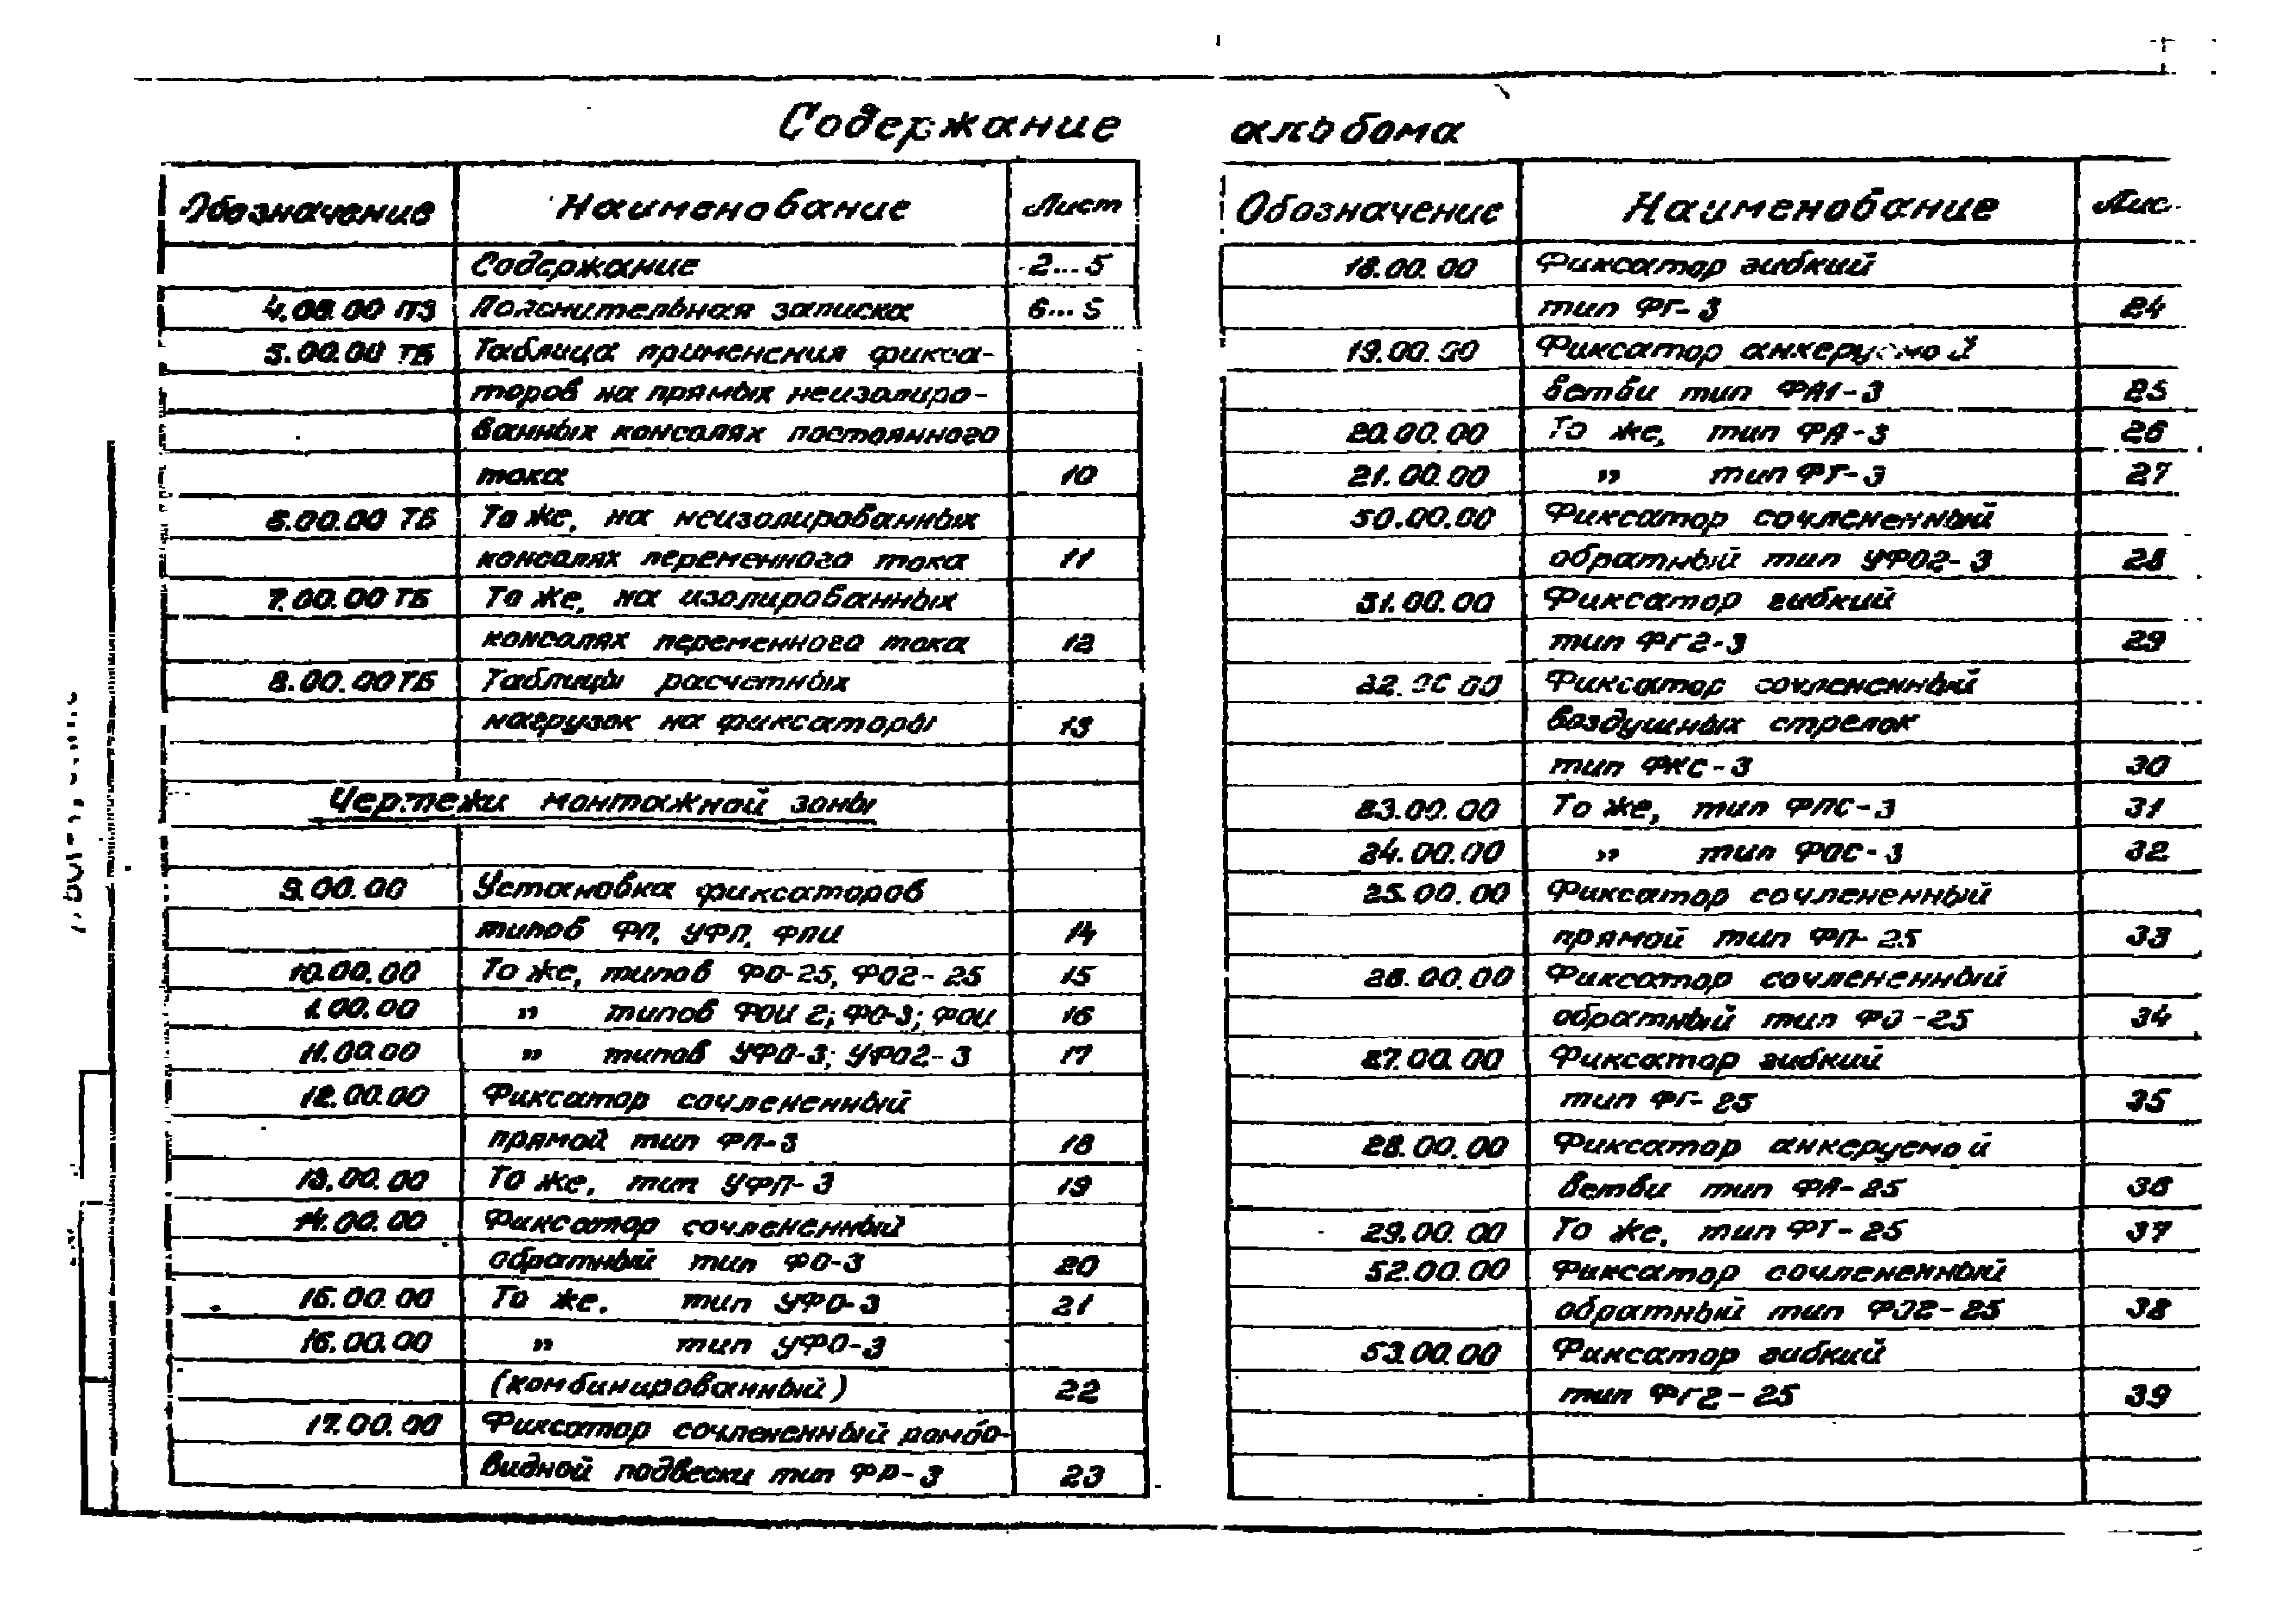 Содержание альбома
Обозначение Наименование Лист
Содержание 2...5
4.00.00 ПЗ Пояснительная записка 6...
5.00.00 ТБ Таблица применения фикса-
торов на прямых неизолиро-
ванных консолях постоянного
тока 10
6.00.00 ТБ То же, на неизолированных
консолях переменного тока 11
7.00.00 ТБ То же, на изолированных
консолях переменного тока 12
8.00.00 ТБ Таблицы расчетных
нагрузок на фиксаторы 13
Чертежи монтажной зоны
9.00.00 Установка фиксаторов
типов ФП, УФП, ФПИ 14
10.00.00 То же, типов ФО-25, ФО2-25 15
1.00.00 " типов ФОИ 2; ФО-3; ФОИ 16
11.00.00 " типов УФО-3; УФО2-3 17
12.00.00 Фиксатор сочлененный
прямой тип ФП-3 18
13.00.00 То же, тип УФП-3 19
14.00.00 Фиксатор сочлененный
обратный тип ФО-3 20
15.00.00 То же, тип УФО-3 21
16.00.00 " тип УФО-3
(комбинированный) 22
17.00.00 Фиксатор сочлененный ромбо-
видной подвески тип ФР-3 23
Обозначение Наименование Лис
18.00.00 Фиксатор гибкий
тип ФГ-3 24
19.00.00 Фиксатор анкеруемой
ветви тип ФА1-3 25
20.00.00 То же, тип ФА-3 26
21.00.00 " тип ФТ-3 27
50.00.00 Фиксатор сочлененный
обратный тип УФО2-3 28
51.00.00 Фиксатор гибкий
тип ФГ2-3 29
22.00.00 Фиксатор сочлененный
воздушных стрелок
тип ФКС-3 30
23.00.00 То же, тип ФПС-3 31
24.00.00 " тип ФОС-3 32
25.00.00 Фиксатор сочлененный
прямой тип ФП-25 33
26.00.00 Фиксатор сочлененный
обратный тип ФО-25 34
27.00.00 Фиксатор гибкий
тип ФГ-25 35
28.00.00 Фиксатор анкеруемой
ветви тип ФА-25 36
29.00.00 То же, тип ФТ-25 37
52.00.00 Фиксатор сочлененный
обратный тип ФО2-25 38
53.00.00 Фиксатор гибкий
тип ФГ2-25 39